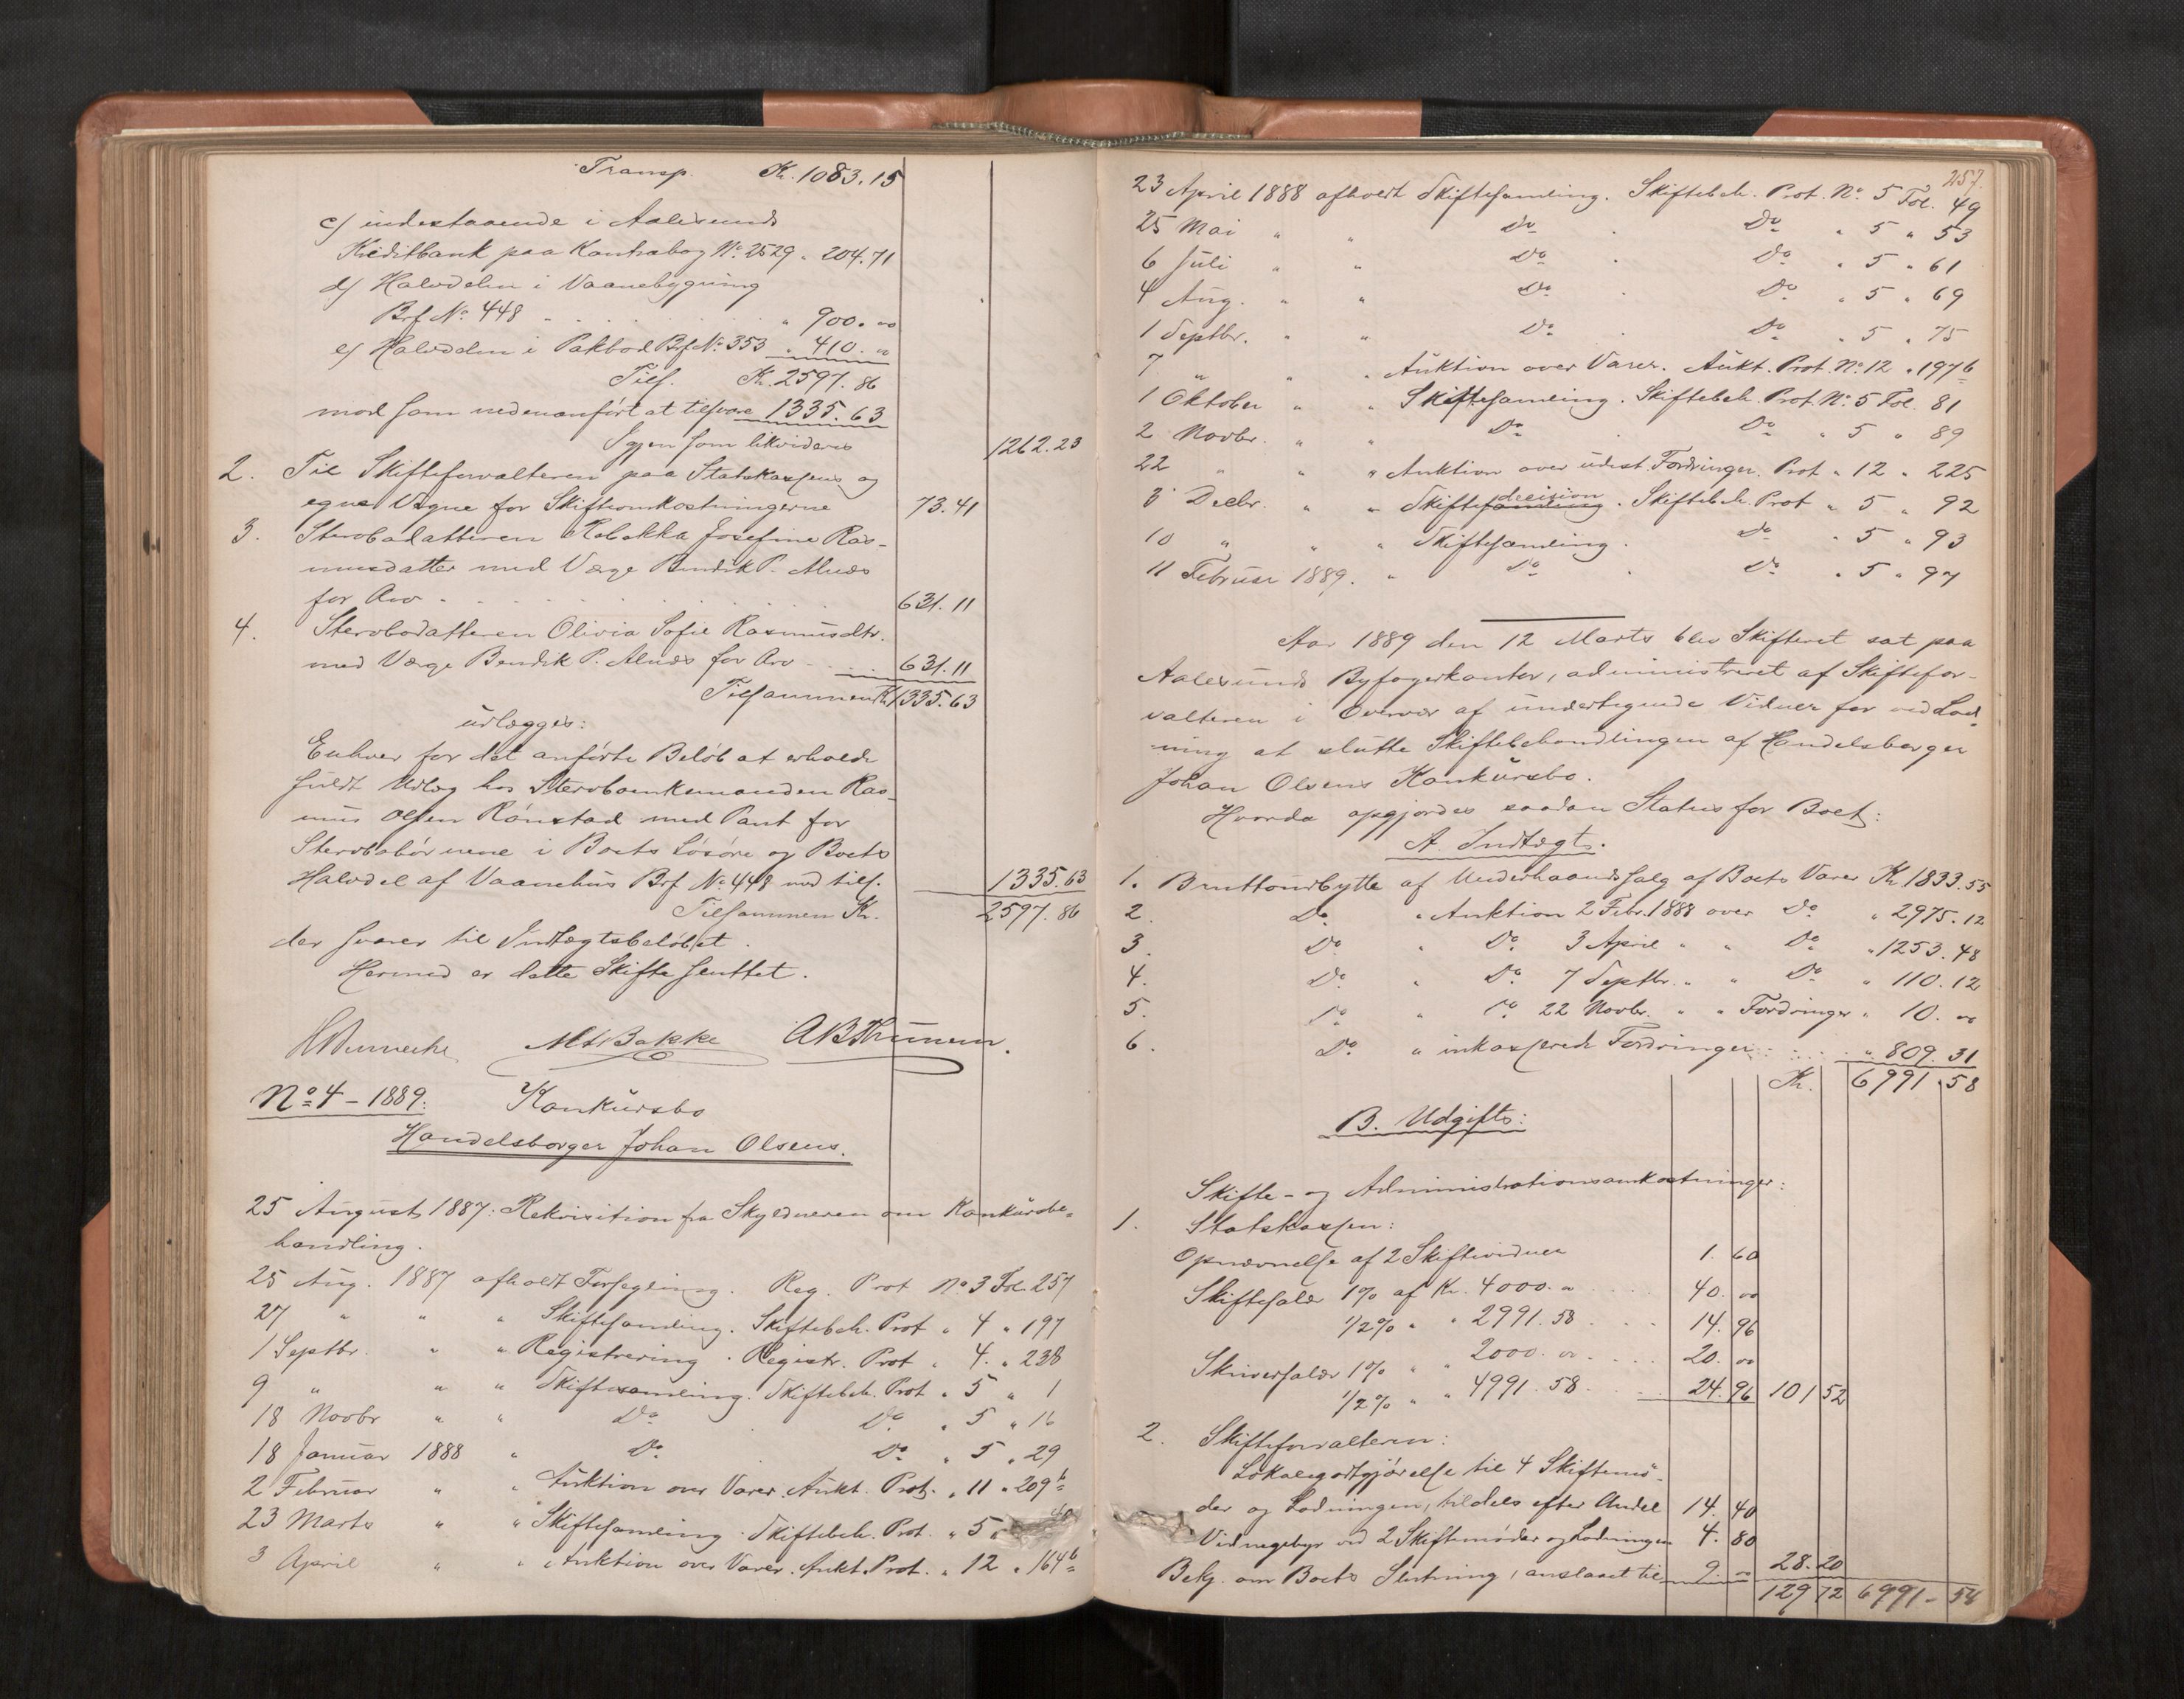 Transp. Kr. 1083.15
c) indestaaende i Aalesunds
Kreditbank paa Kontrabog No. 2529 " 204.71
d) Halvdelen i Vaanebygning
Brf No. 448 . . . " 900. "
e) Halvdelen i Pakbod Brf No. 353 " 410. "
Tils. Kr. 2597.86
mod som nedenanført at tilsvare 1335.63
Igjen som likvideres 1262.23
2. Til Skifteforvalteren paa Statskassens og
egne Vegne for Skifteomkostningerne 73.41
3. Stervbodatteren Rebekka Josefine Ras-
musdatter med Værge Bendik P. Alnæs
for Arv . . . 631.11
4. Stervbodatteren Olivia Sofie Rasmusdtr.
med Værge Bendik P. Alnæs for Arv . . . 631.11
Tilsammen Kr. 1335.63
udlægges:
Enhver for det anførte Beløb at erholde
fuldt Udlæg hos Stervboenkemanden Ras-
mus Olsen Rønstad med Pant for
Stervbobørnene i Boets Løsøre og Boets
Halvdel af Vaanehus Brf No. 448 med tils. 1335.63
Tilsammen Kr. 2597.86
der svarer til Indtægtsbeløbet.
Hermed er dette Skifte sluttet.
M Bakke A B Thunem.
No. 4 – 1889. Konkursbo
Handelsborger Johan Olsens.
25 August 1887: Rekvisition fra Skyldneren om Konkursbe-
handling.
25 Aug. 1887 afholdt Forsegling. Reg. Prot No 3 Fol. 257
27 " " " Skiftesamling. Skiftebeh. Prot " 4 " 197
1 Septbr. " " Registrering. Registr. Prot " 4. " 238
9 " " " Skiftesamling. Skiftebeh. Prot " 5 " 1
18 Novbr " " Do. Do. " 5 " 16
18 Januar 1888 " Do. Do. " 5 " 29
2 Februar " " Auktion over Varer. Aukt. Prot. " 11 " 209b
23 Marts " " Skiftesamling. Skiftebeh. Prot. " 5 " 40
3 April " " Auktion over Varer. Aukt. Prot. " 12 " 164b
257.
23 April 1888 afholdt Skiftesamling. Skiftebeh. Prot. No. 5 Fol. 49
25 Mai " " Do. Do. " 5 " 53
6 Juli " " Do. Do. " 5 " 61
4 Aug. " " Do. Do. " 5 " 69
1 Septbr. " " Do. Do. " 5 " 75
7 " " " Auktion over Varer. Aukt. Prot. No. 12 " 197b
1 Oktober " " Skiftesamling. Skiftebeh. Prot. No. 5 Fol. 81
2 Novbr. " " Do. Do. " 5 " 89
22 " " " Auktion over udest. Fordringer. Prot " 12 " 225
3 Decbr. " " Skiftesamling decision. Skiftebeh. Prot " 5 " 92
10 " " " Skiftesamling. Do. " 5 " 93
11 Februar 1889. " Do. Do. " 5 " 97
Aar 1889 den 12 Marts blev Skifteret sat paa
Aalesunds Byfogedkontor, administreret af Skiftefor-
valteren i Overvær af undertegnede Vidner for ved Lod-
ning at slutte Skiftebehandlingen af Handelsborger
Johan Olsens Konkursbo.
Hvorda opgjordes saadan Status for Boet:
A. Indtægt.
1. Bruttoudbytte af Underhaandssalg af Boets Varer Kr. 1833.55
2. Do. " Auktion 2 Febr. 1888 over Do. " 2975.12
3. Do. " Do. 3 April " " Do. " 1253.48
4. Do. " Do. 7 Septbr. " " Do. " 110.12
5. Do. " Do. 22 Novbr. " " Fordringer " 10. "
6. Do. " inkasserede Fordringer . . . " 809.31
Kr. 6991.58
B. Udgift:
Skifte- og Administrationsomkostninger:
1. Statskassen:
Opnævnelse af 2 Skiftevidner 1.60
Skiftesalær 1% af Kr. 4000. " . . . 40. "
1/2% " " 2991.58 . . . 14.96
Skriversalær 1% " " 2000. " . . . 20. "
1/2% " " 4991.58 . . . 24.96 101 52
2. Skifteforvalteren:
Lokalegodtgjørelse til 4 Skiftemø-
der og Lodningen, tildels efter Andel 14.40
Vidnegebyr ved 2 Skiftemøder og Lodningen 4.80
Bekj. om Boets Slutning, anslaaet til 9. " 28.20
129 72 6991 – 58